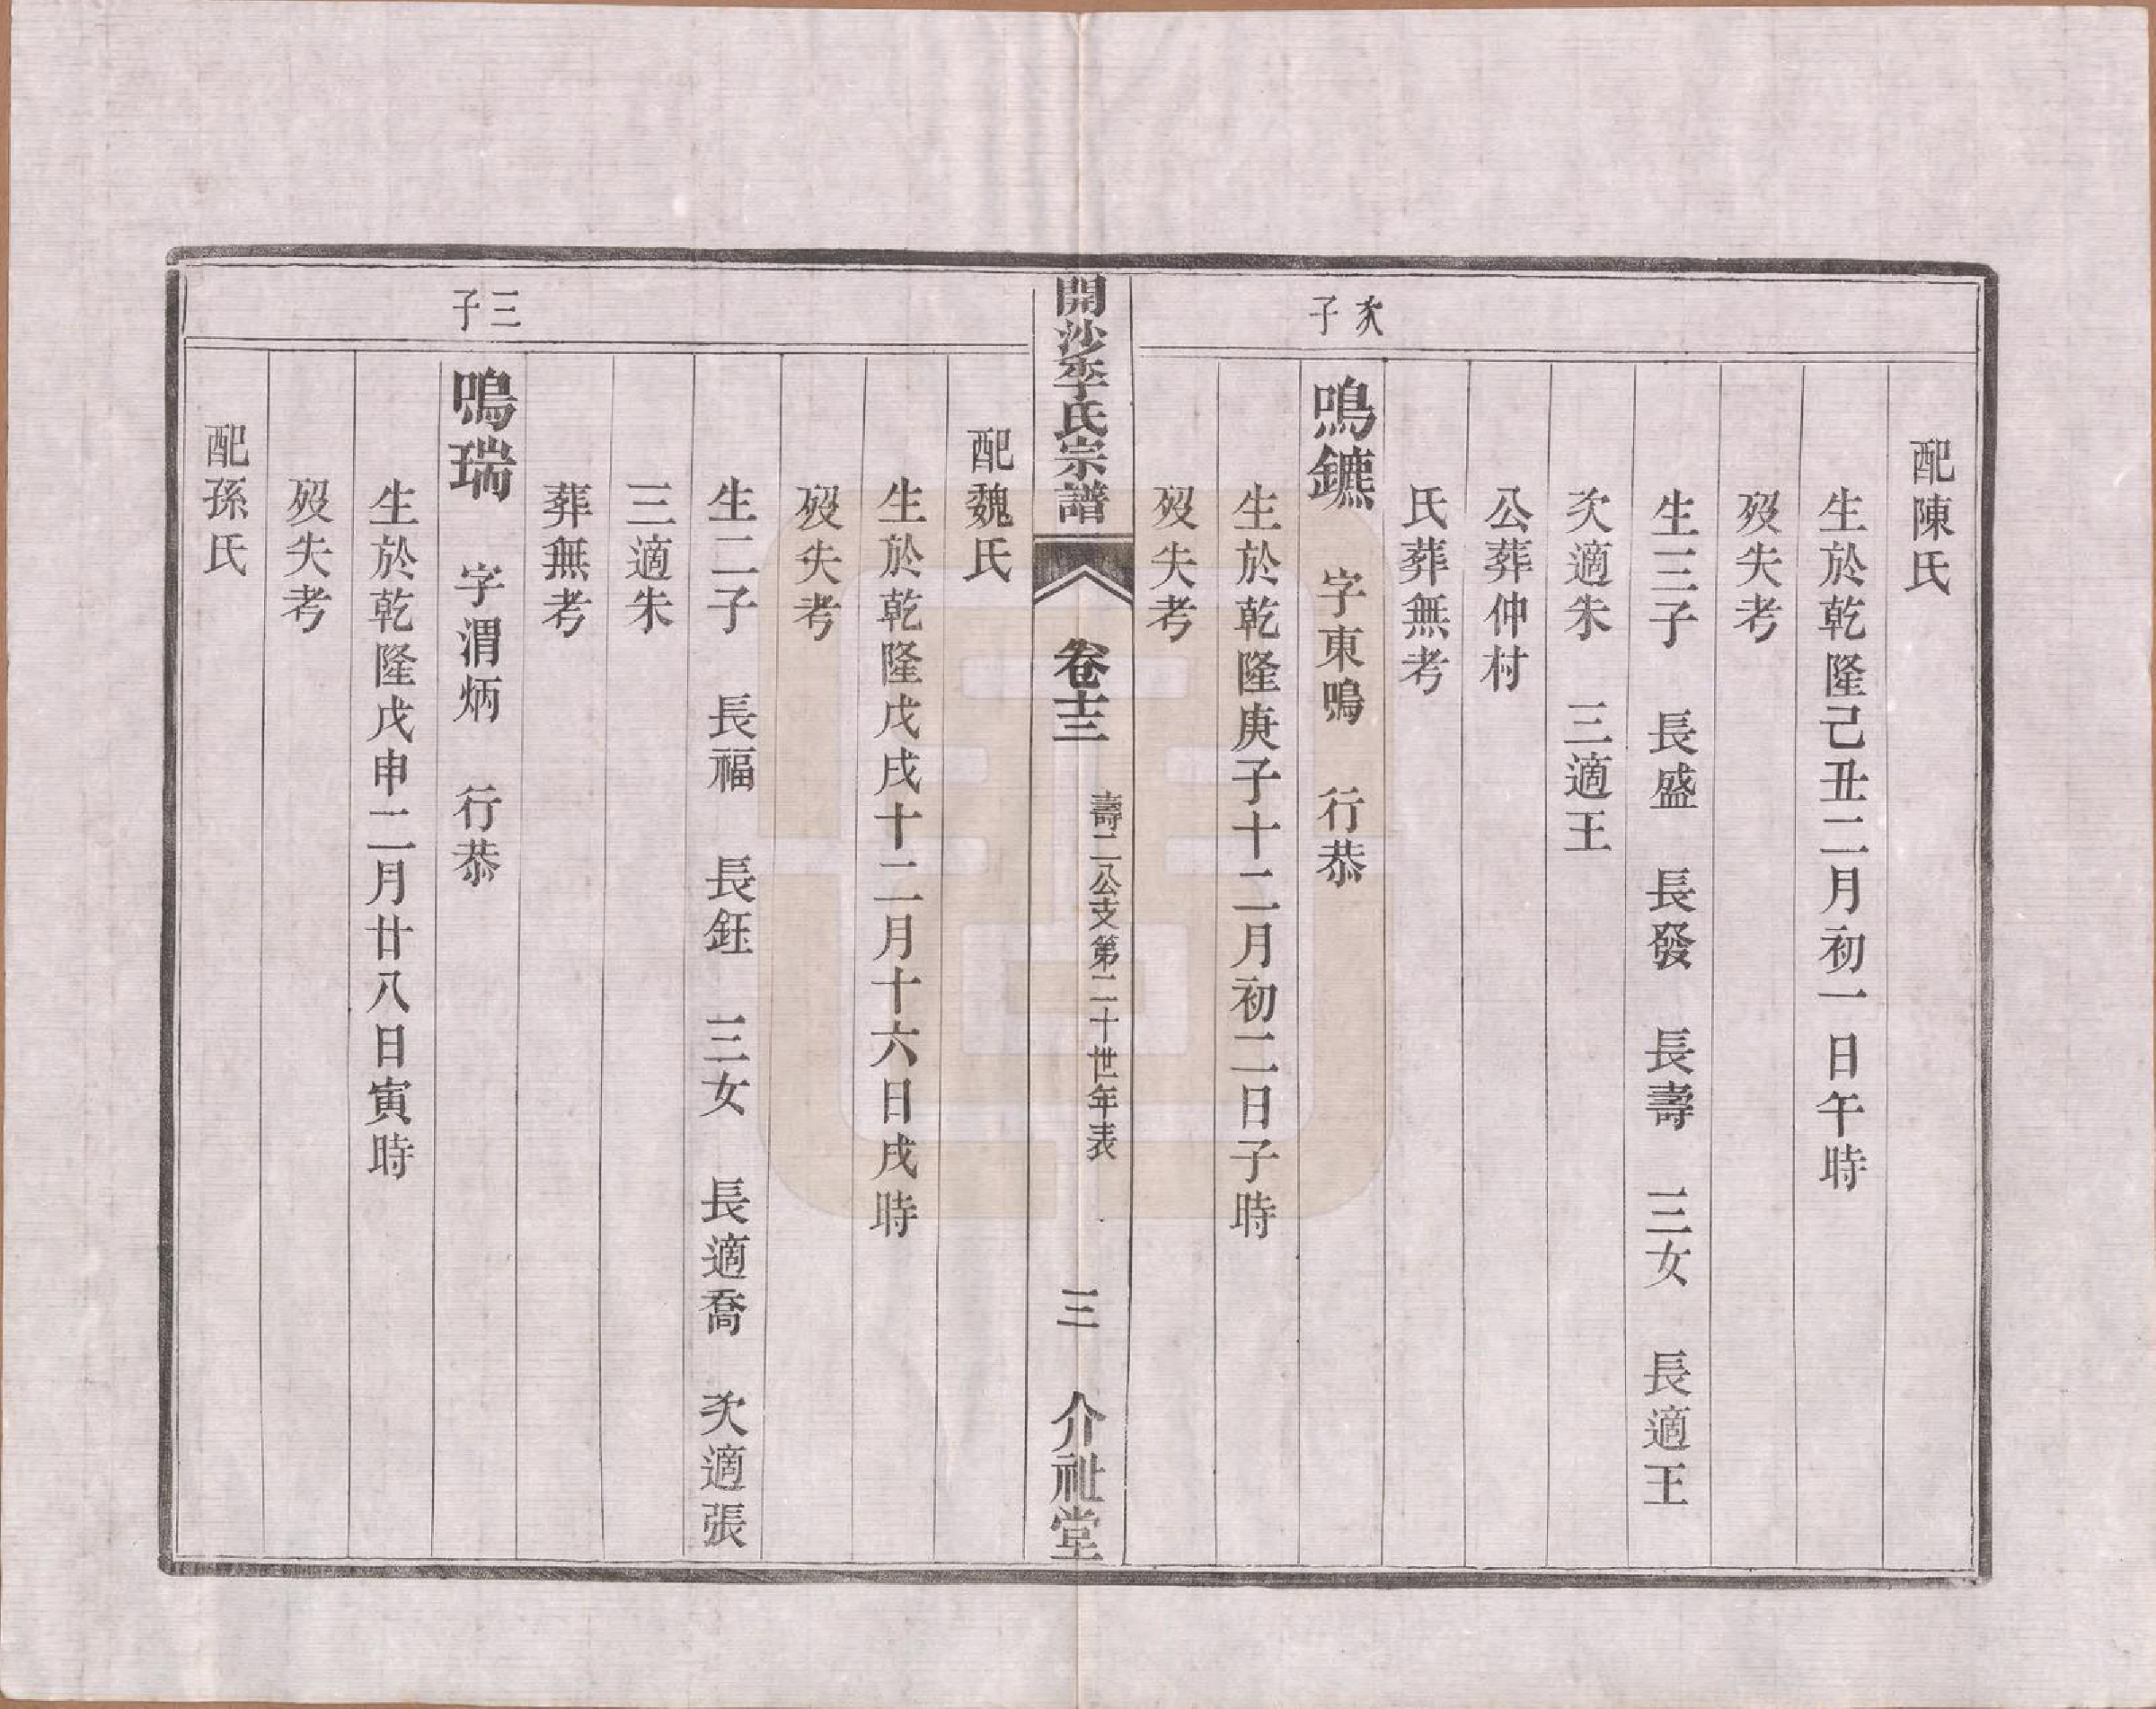 配陳氏
生於乾隆己丑二月初一日午時
歿失考
生三子　長盛　長發　長壽　三女　長適王
次適朱　三適王
公葬仲村
氏葬無考
次子
鳴鑣　字東鳴　行恭
生於乾隆庚子十二月初二日子時
歿失考
開沙李氏宗譜　卷十三　壽二公支第二十世年表　三　介祉堂
配魏氏
生於乾隆戊戌十二月十六日戌時
歿失考
生二子　長福　長鈺　三女　長適喬　次適張
三適朱
葬無考
三子
鳴瑞　字渭炳　行恭
生於乾隆戊申二月廿八日寅時
歿失考
配孫氏